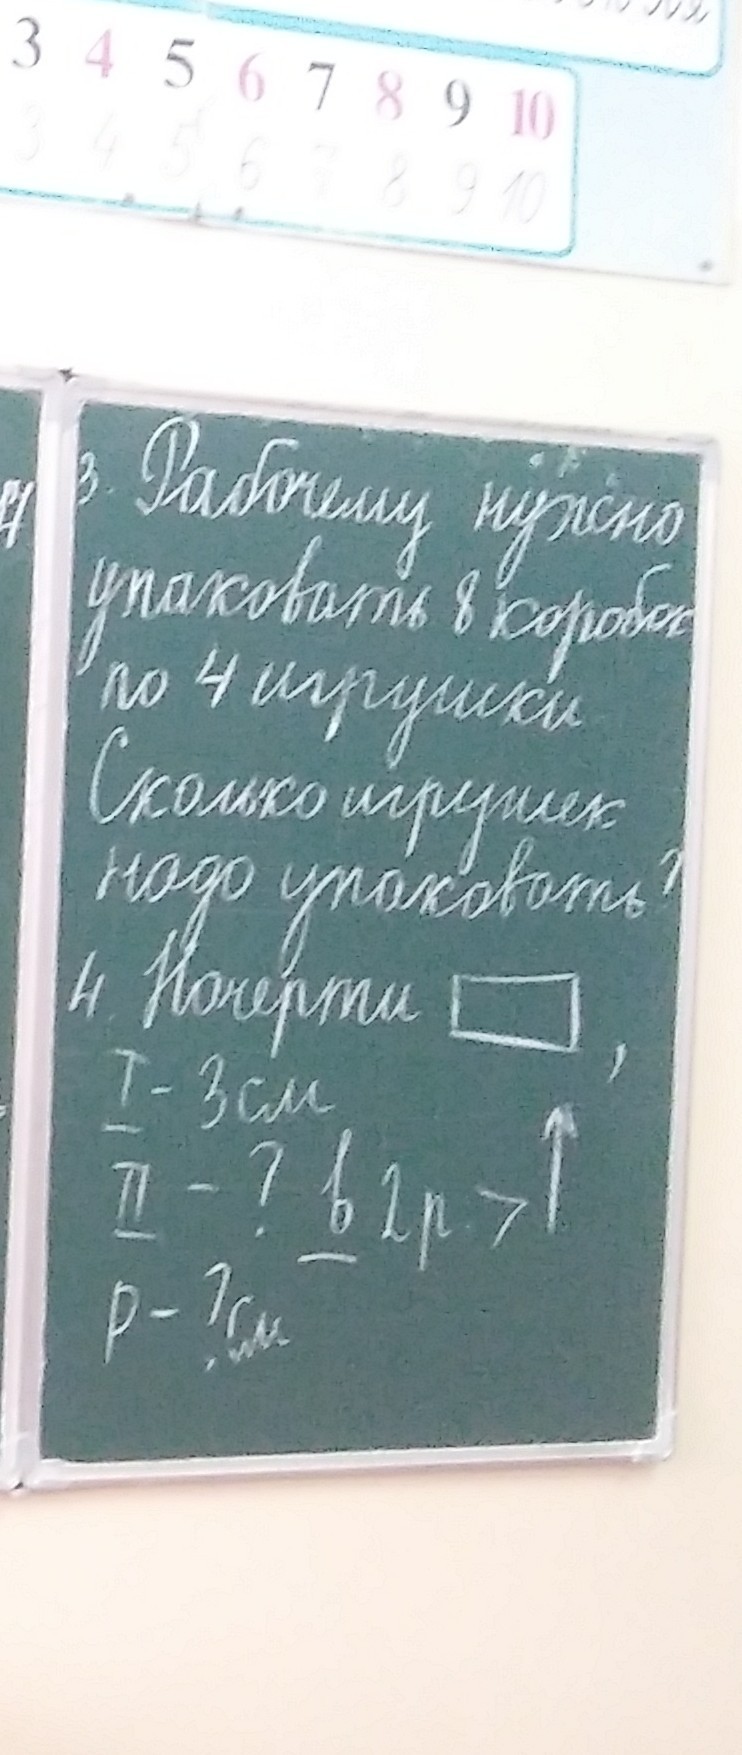 3 4 5 6 7 8 9 10
3 4 5 6 7 8 9 10
3. Рабочему нужно
упаковать 8 коробок
по 4 игрушки
Сколько игрушек
надо упаковать?
4. Начерти ▭,
I - 3 см
II - ? в 2 р. > ↑
P - ? см